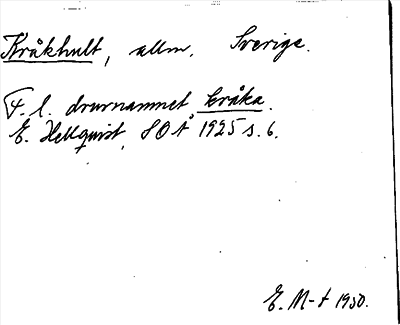 Kråkhult, allm. Sverige.
F. l. djurnamnet kråka.
E. Hellquist, SOÅ 1925 s. 6.
E. M-t 1930.